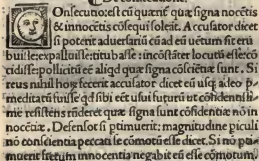 COnsecutio: est cũ quærit᷑ quæ signa nocẽtis
& innocẽtis cõsequi soleãt. Accusator dicet
si poterit aduersariũ cũ ad eũ uẽtum sit eru
buisse: expalluisse: titubasse: incõstãter locutũ esse: cõ
cidisse: pollicitũ eẽ aliqd quæ signa cõsciẽtiæ sunt. Si
reus nihil hoꝝ fecerit accusator dicet eũ usq; adeo p̃
meditatũ fuisse qd sibi eẽt usui futurũ ut cõfidentissi
me resistẽs rñderet quæ signa sunt cõfidẽtiæ nõ in
nocẽtiæ. Defensor si ptimuerit: magnitudine piculi
nõ conscientia peccati se cõmotũ esse dicet. Si nõ pti
muerit fretum innocentia negabit eũ esse cõmotum: